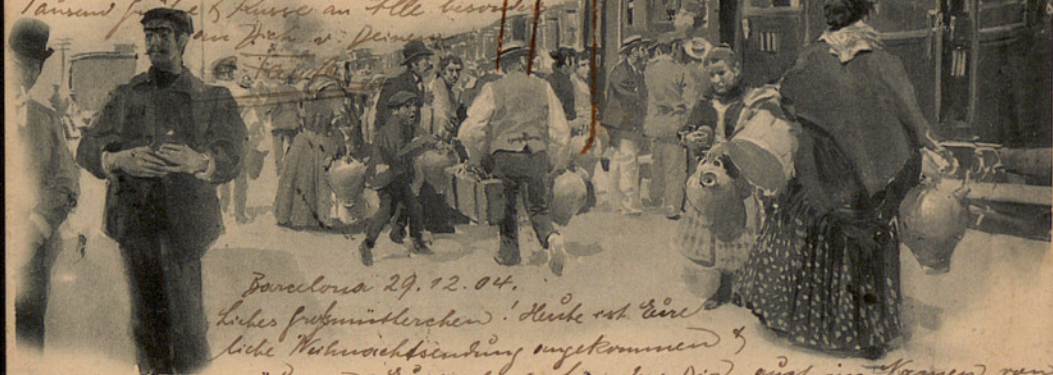 Tausend Grüße & Küsse an Alle besonders
an Dich v. Deinem
Barcelona 29.12.04.
Liebes Großmütterchen! Heute ist Eure
liebe Weihnachtsendung angekommen &
Dir auch im Namen von